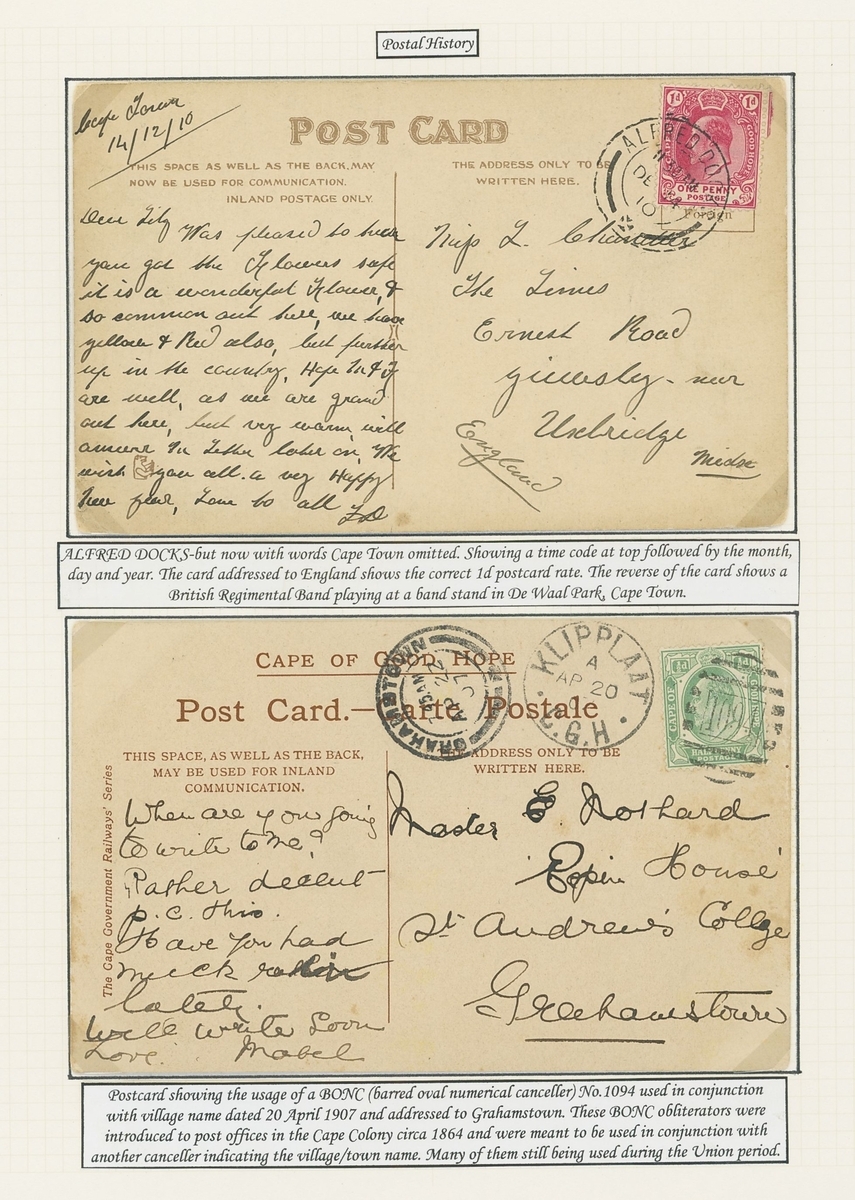 Postal History
Cape Town
14/12/10
POST CARD
THIS SPACE AS WELL AS THE BACK, MAY
NOW BE USED FOR COMMUNICATION.
INLAND POSTAGE ONLY.
THE ADDRESS ONLY TO BE
WRITTEN HERE.
1d 1d
GOOD HOPE
ONE PENNY
POSTAGE
Foreign
ALFRED DOC
DE 14
10
Dear Lily
Was pleased to hear
you got the Flowers safe
it is a wonderful Flower, &
so common out here, we have
yellow & Red also, but further
up in the country, Hope M & F
are well, as we are grand
out here, but very warm, will
answer In Letter later on, We
wish you all a very Happy
New year, Love to all
Miss L. Chandler
The Limes
Ernest Road
near
Uxbridge
Middx
England
ALFRED DOCKS-but now with words Cape Town omitted. Showing a time code at top followed by the month,
day and year. The card addressed to England shows the correct 1d postcard rate. The reverse of the card shows a
British Regimental Band playing at a band stand in De Waal Park, Cape Town.
CAPE OF GOOD HOPE
Post Card.—Carte Postale
THIS SPACE, AS WELL AS THE BACK,
MAY BE USED FOR INLAND
COMMUNICATION.
THE ADDRESS ONLY TO BE
WRITTEN HERE.
The Cape Government Railways' Series
GRAHAMSTOWN
AP 22
07
KLIPPLAAT
A
AP 20
07
C.G.H.
CAPE OF
HALFPENNY
POSTAGE
When are you going
to write to me?
Rather decent
p.c. this.
Have you had
much rain
lately.
Will write Soon
Love. Mabel
Master E. Nothard
Espin House
St Andrew's College
Grahamstown
Postcard showing the usage of a BONC (barred oval numerical canceller) No.1094 used in conjunction
with village name dated 20 April 1907 and addressed to Grahamstown. These BONC obliterators were
introduced to post offices in the Cape Colony circa 1864 and were meant to be used in conjunction with
another canceller indicating the village/town name. Many of them still being used during the Union period.